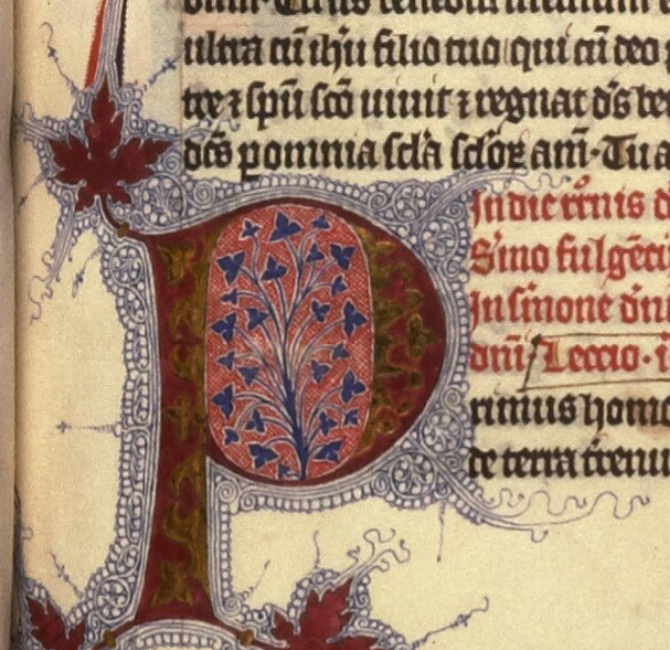 ultra cū ihū filio tuo qui cū deo p
tre ⁊ spū scō uiuit ⁊ regnat ds be
dcs p omnia scla sclor am̄· Tu a
In die
Smo fulgēci
In smone dn̄i
dn̄i Leccio · i
P rimus homo
de terra